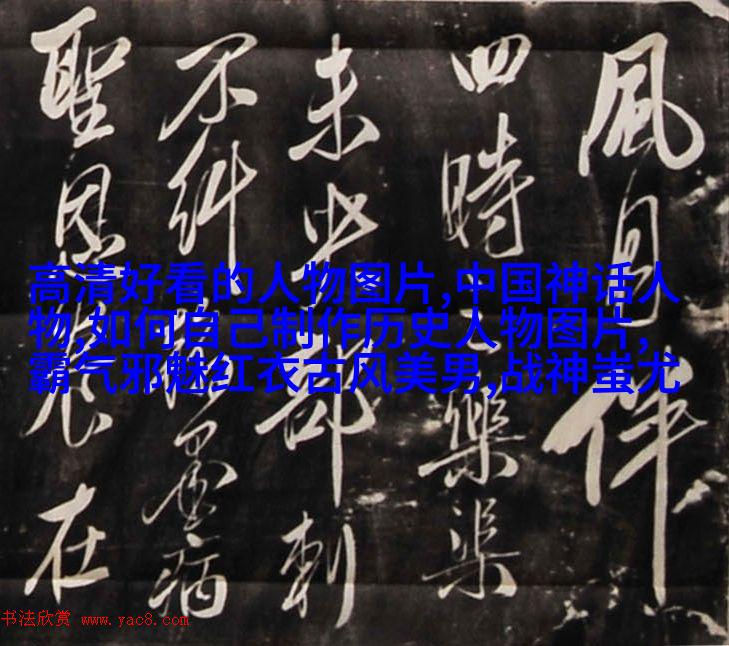 風月伴
四時樂
未部刺
不糾病
聖恩在
高清好看的人物图片,中国神话人
物,如何自己制作历史人物图片,
霸气邪魅红衣古风美男,战神蚩尤
书法欣赏 www.yac8.com